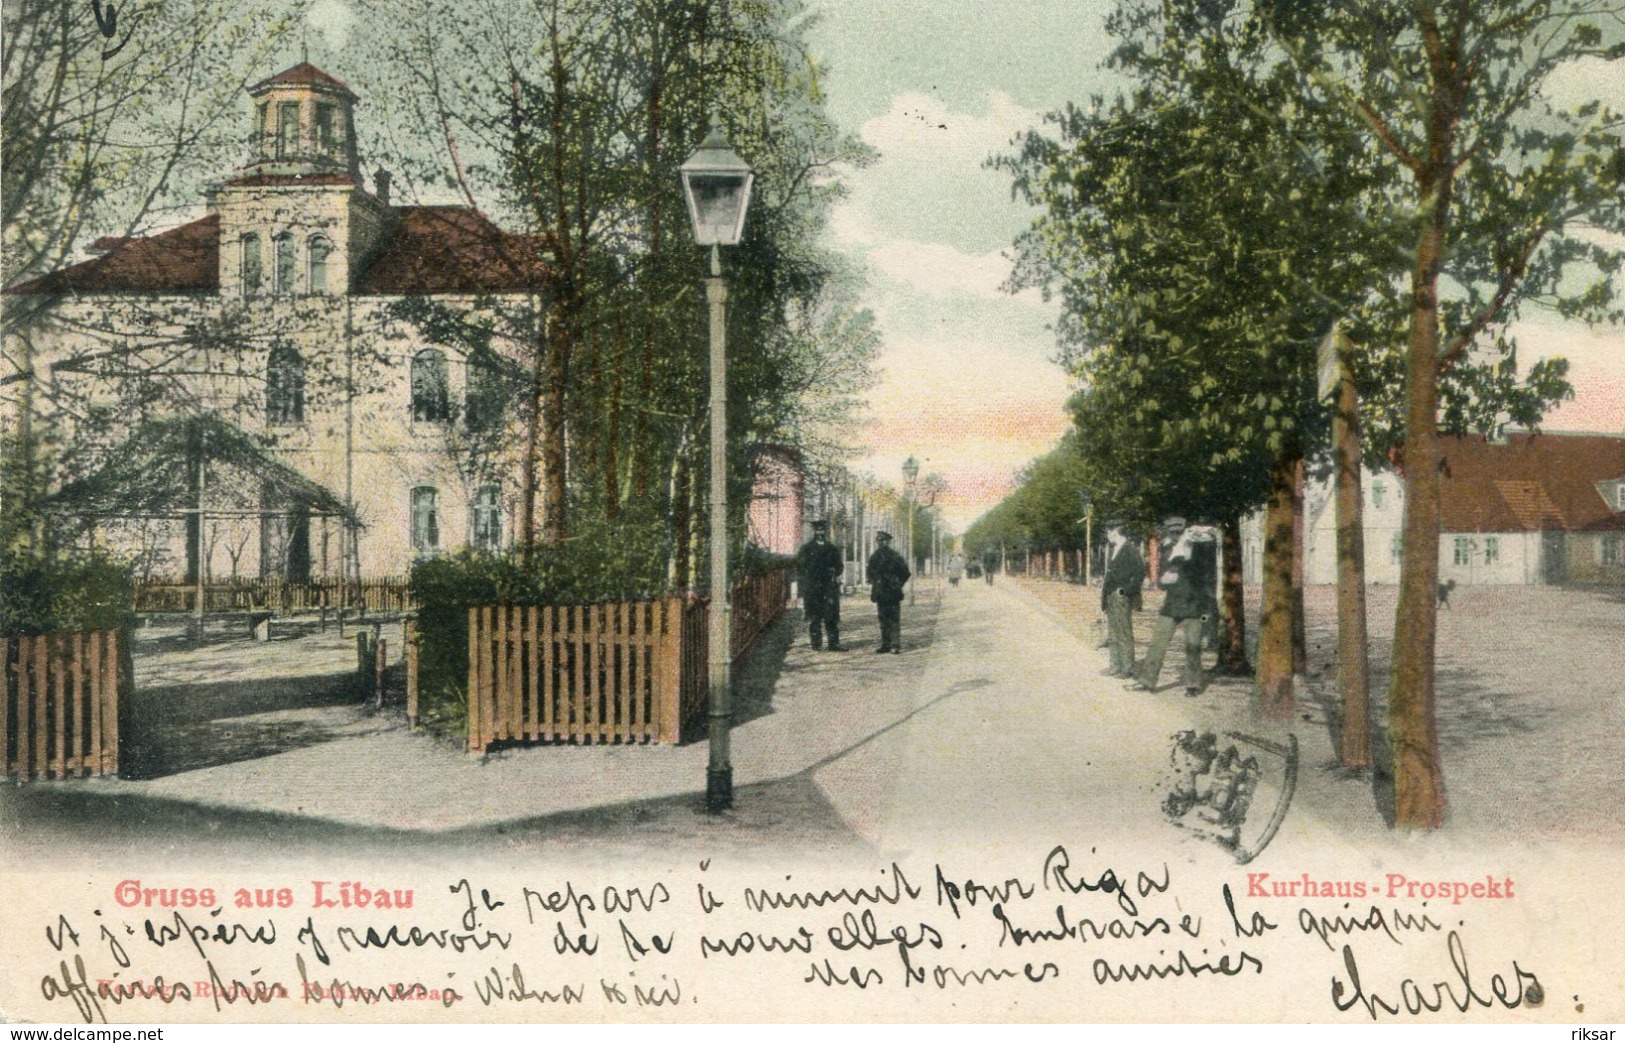 Gruss aus Libau
Kurhaus-Prospekt
Je repars à minuit pour Riga
et j'espère y recevoir de te nouvelles. Embrasse la quiqui.
affaires très bonnes à Wilna & ici. Mes bonnes amitiés
Charles.
Verlag: Rudolph Libau.
riksar